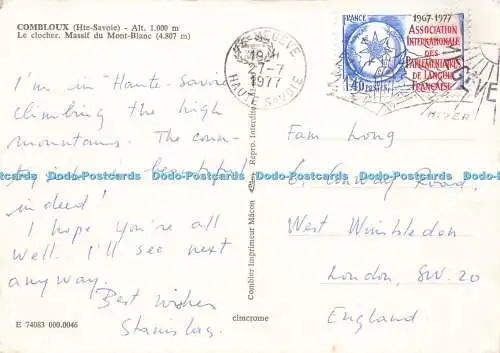 COMBLOUX (Hte-Savoie) - Alt. 1.000 m
Le clocher. Massif du Mont-Blanc (4.807 m)
I'm in "Haute-Savoie
climbing the high
mountains. The coun-
try is beautiful
indeed!
I hope you're all
well. I'll see next
anyway.
Best wishes
Stanislas.
E 74083 000.0046
Combier Imprimeur Mâcon
Repro. Interdite
cimcrome
MEGEVE
1977
HAUTE SAVOIE
FRANCE
1967-1977
ASSOCIATION
INTERNATIONALE
DES
PARLEMENTAIRES
DE LANGUE
FRANÇAISE
1,40 POSTES
HIVER
Fam Long
6, Conway Road.
West Wimbledon
London, SW. 20
England
Dodo-Postcards Dodo-Postcards Dodo-Postcards Dodo-Postcards Dodo-Postcards